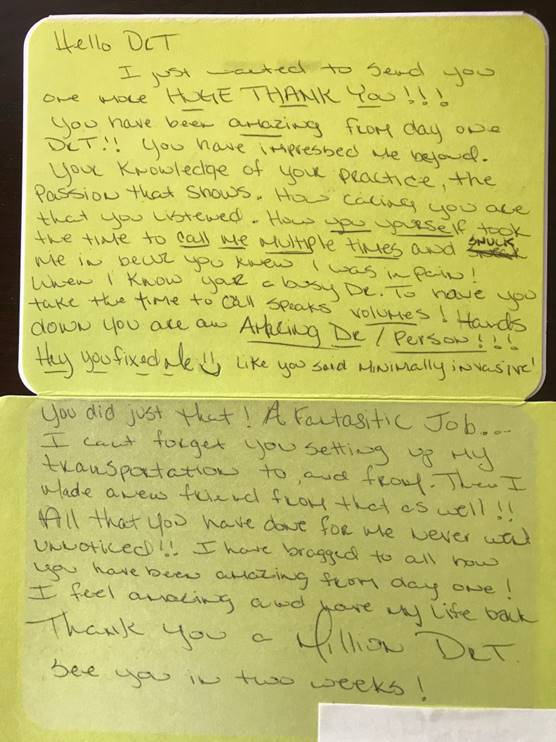 Hello Dr T
I just wanted to send you
one more HUGE THANK YOU!!!
You have been amazing from day one
Dr T!! You have impressed me beyond.
Your knowledge of your practice, the
Passion that shows. How caring you are
that you listened. How you yourself took
the time to call me multiple times and SNUCK
me in becuz you knew I was in pain!
When I know your a busy Dr. To have you
take the time to call speaks volumes! Hands
down you are an AMAZING Dr / Person!!!
Hey you fixed me!! Like you said minimally invasive!
You did just that! A Fantasitic Job...
I cant forget you setting up my
transportation to and from. Then I
made a new friend from that as well!!
All that you have done for me never went
unnoticed!! I have bragged to all how
you have been amazing from day one!
I feel amazing and have my life back
Thank you a Million Dr T.
See you in two weeks!